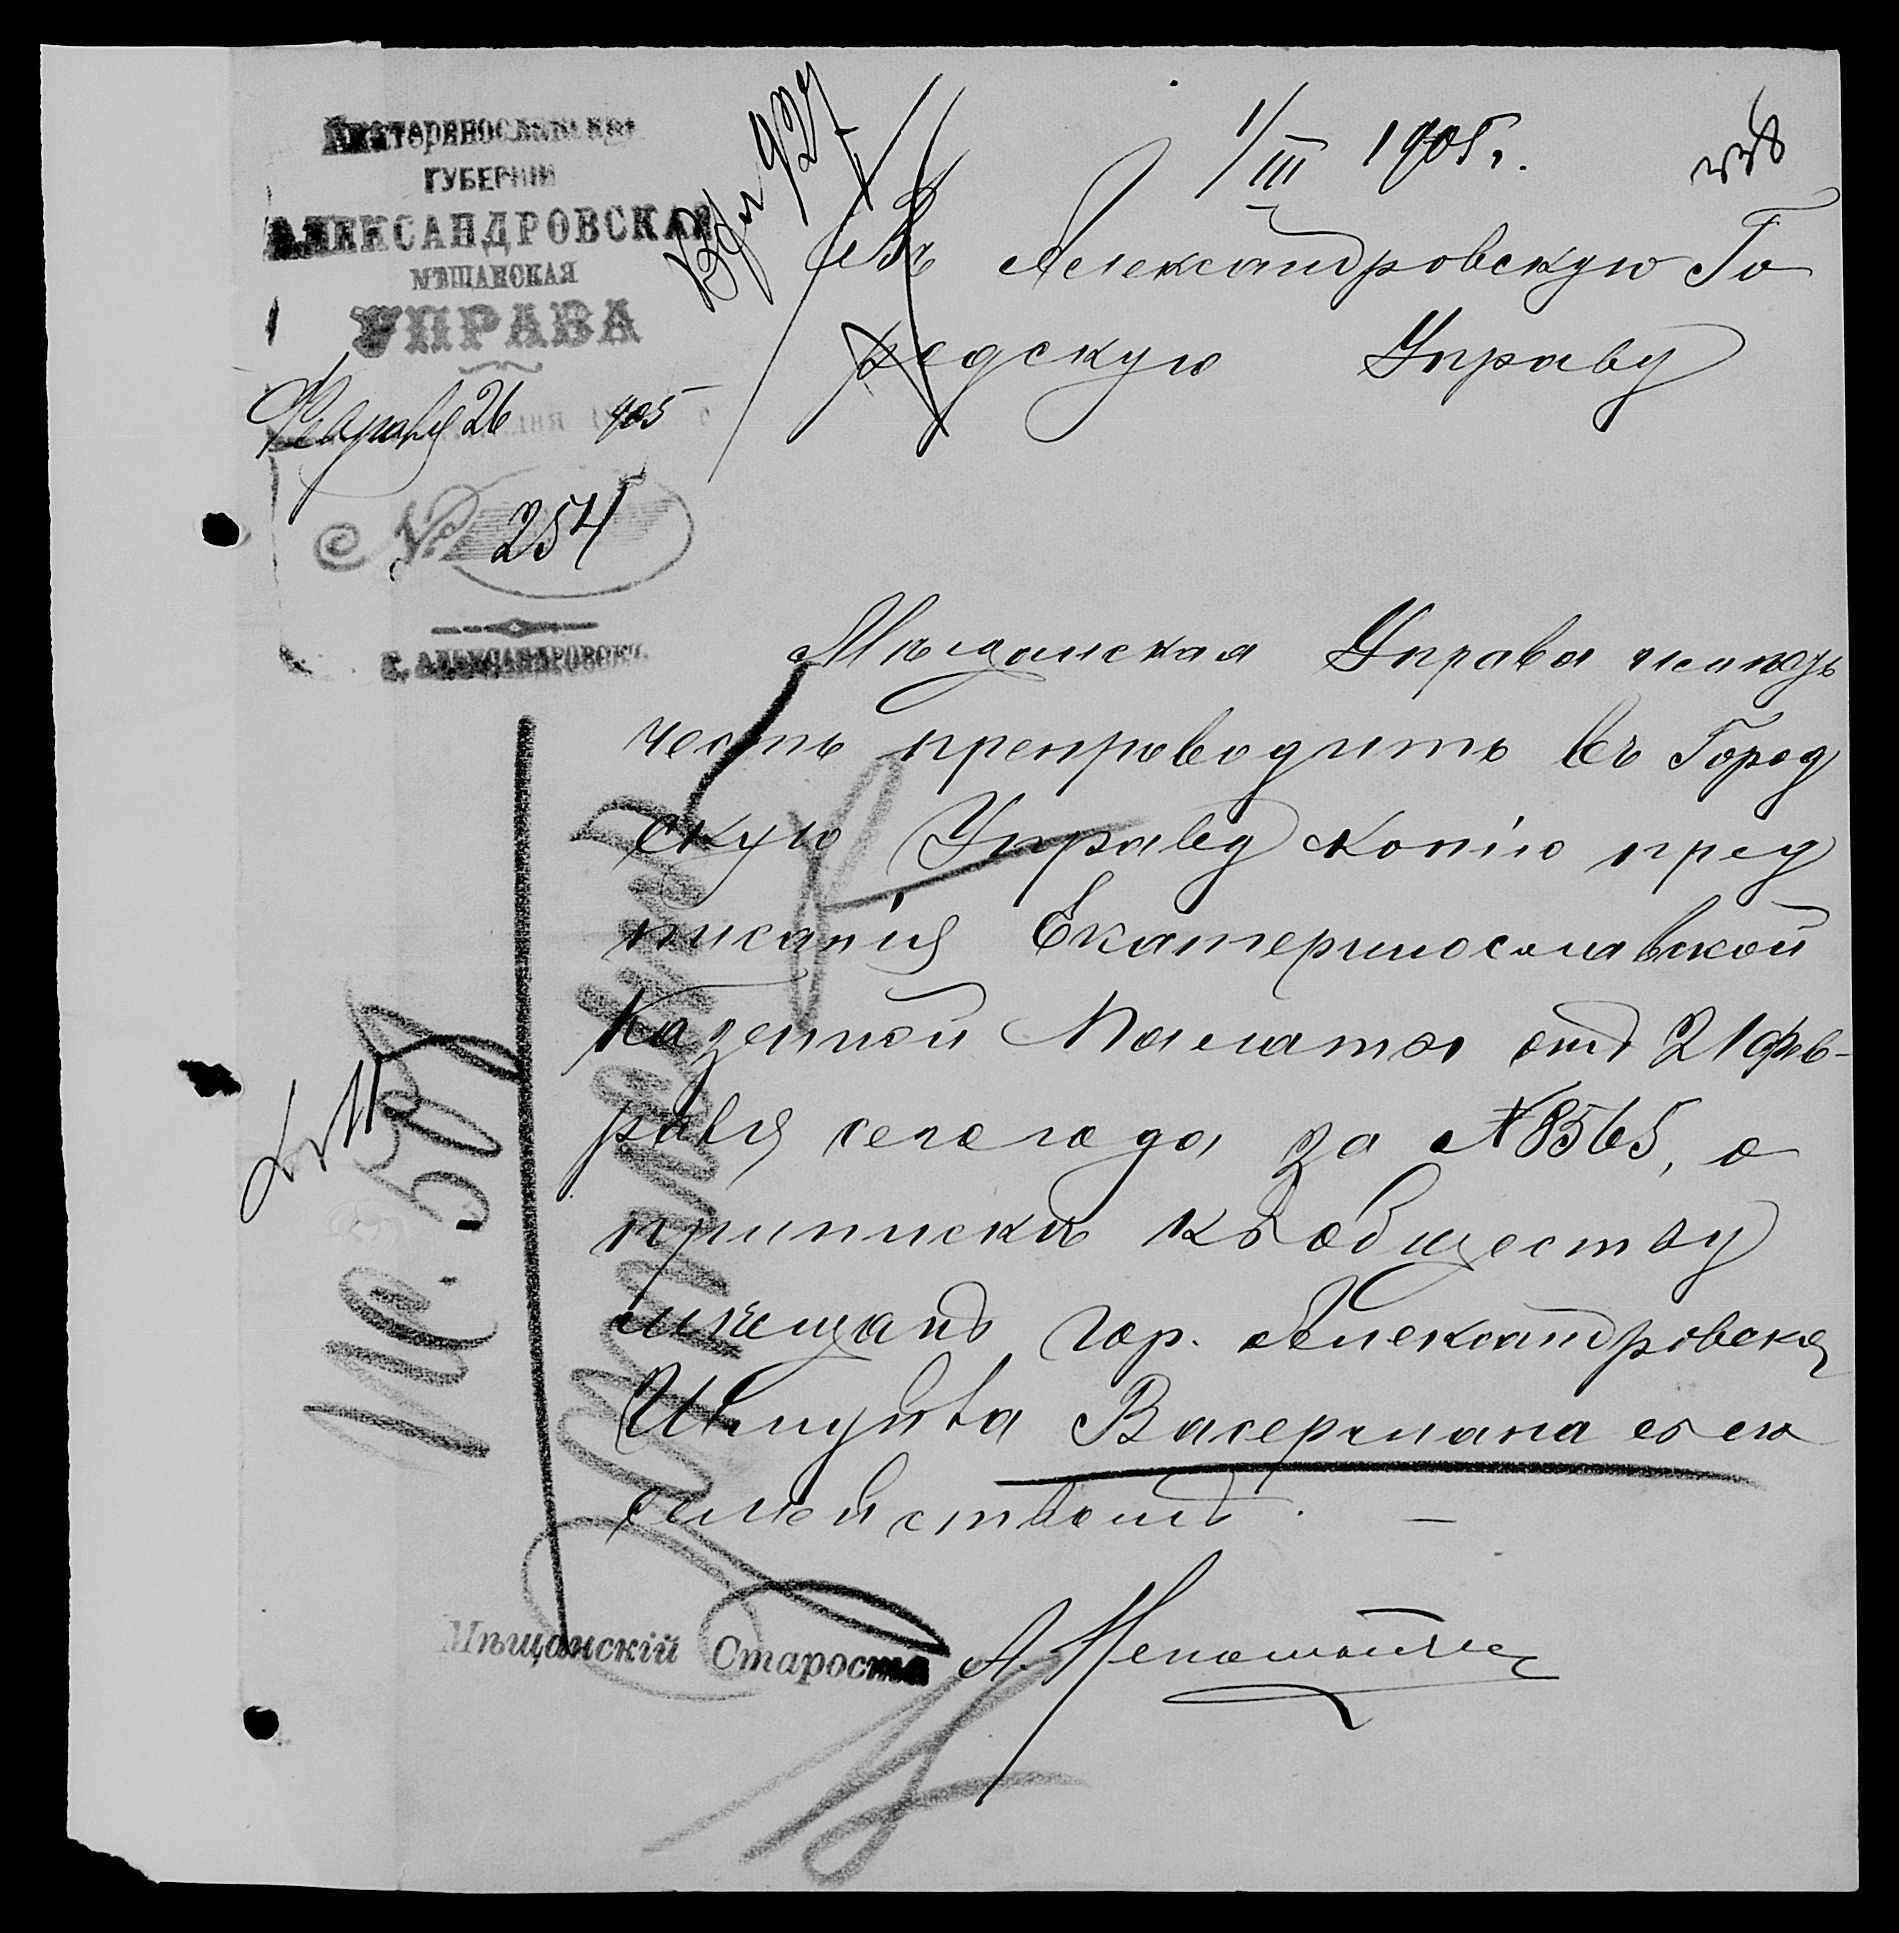 Екатеринославской
ГУБЕРНІИ
АЛЕКСАНДРОВСКАЯ
МѢЩАНСКАЯ
УПРАВА
Февраля 26 1905
№ 254
Г. АЛЕКСАНДРОВСКЪ
927
1/III 1905 г.
Въ Александровскую Го
родскую Управу
Мѣщанская Управа имѣетъ
честь препроводить въ Город
скую Управу копію пред
писанія Екатеринославской
Казенной Палаты отъ 21 фев-
раля сего года за № 8565, о
припискѣ къ обществу
мѣщанъ гор. Александровска
Васермана съ его
семействомъ. —
Мѣщанскій Староста